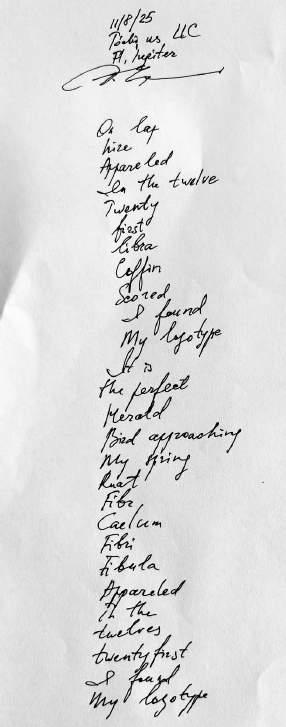 11/8/25
us, LLC
Fl, Jupiter
On lap
hire
Appareled
In the twelve
Twenty
first
libra
Coffin
Scored
I found
My logotype
It is
the perfect
Herald
Bird approaching
My spring
Ruat
Fibr
Caelum
Fibri
Fibula
Appareled
In the
twelves
twenty first
I found
My logotype